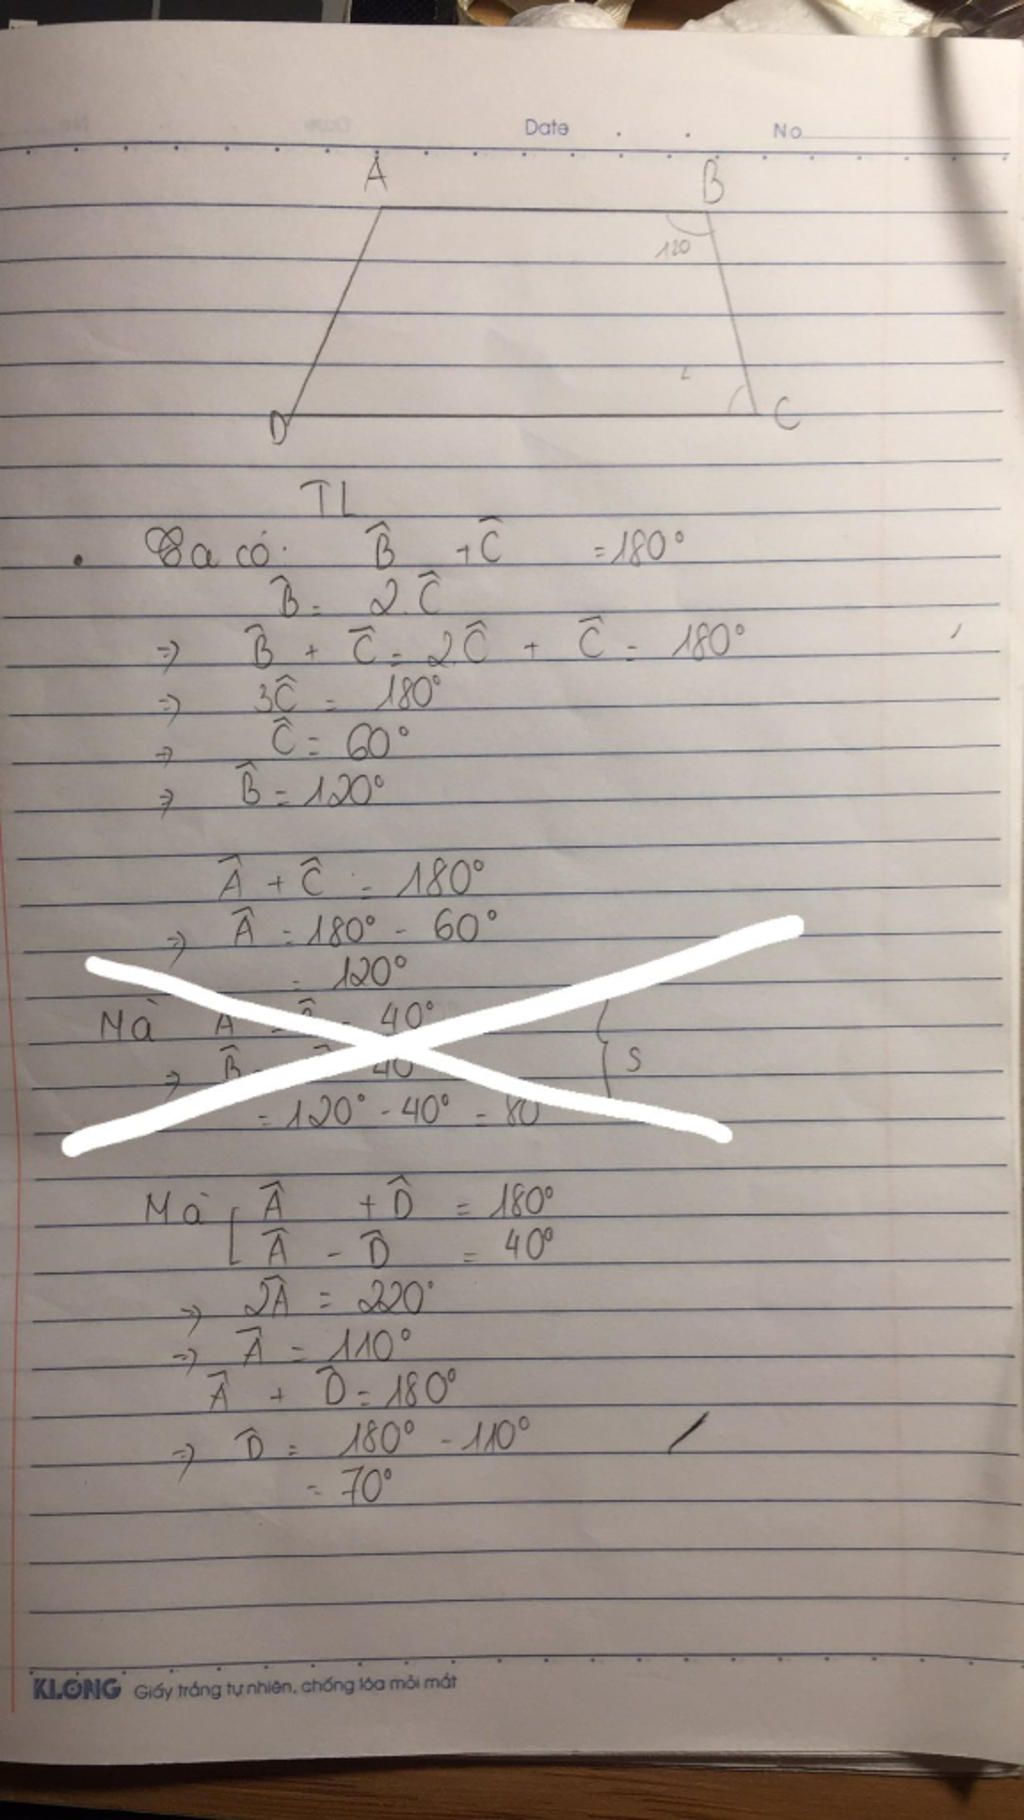 Date . . No
A
B
120
D
C
TL
Ta có: B̂ + Ĉ = 180°
B̂ = 2.Ĉ
=> B̂ + Ĉ = 2Ĉ + Ĉ = 180°
=> 3Ĉ = 180°
=> Ĉ = 60°
=> B̂ = 120°
Â + Ĉ = 180°
=> Â = 180° - 60°
= 120°
Mà 40°
=> B̂ 40
= 120° - 40° = 80
S
Mà [ Â + D̂ = 180°
Â - D̂ = 40°
=> 2Â = 220°
=> Â = 110°
Â + D̂ = 180°
=> D̂ = 180° - 110°
= 70°
KLONG Giấy trắng tự nhiên, chống lóa mỏi mắt